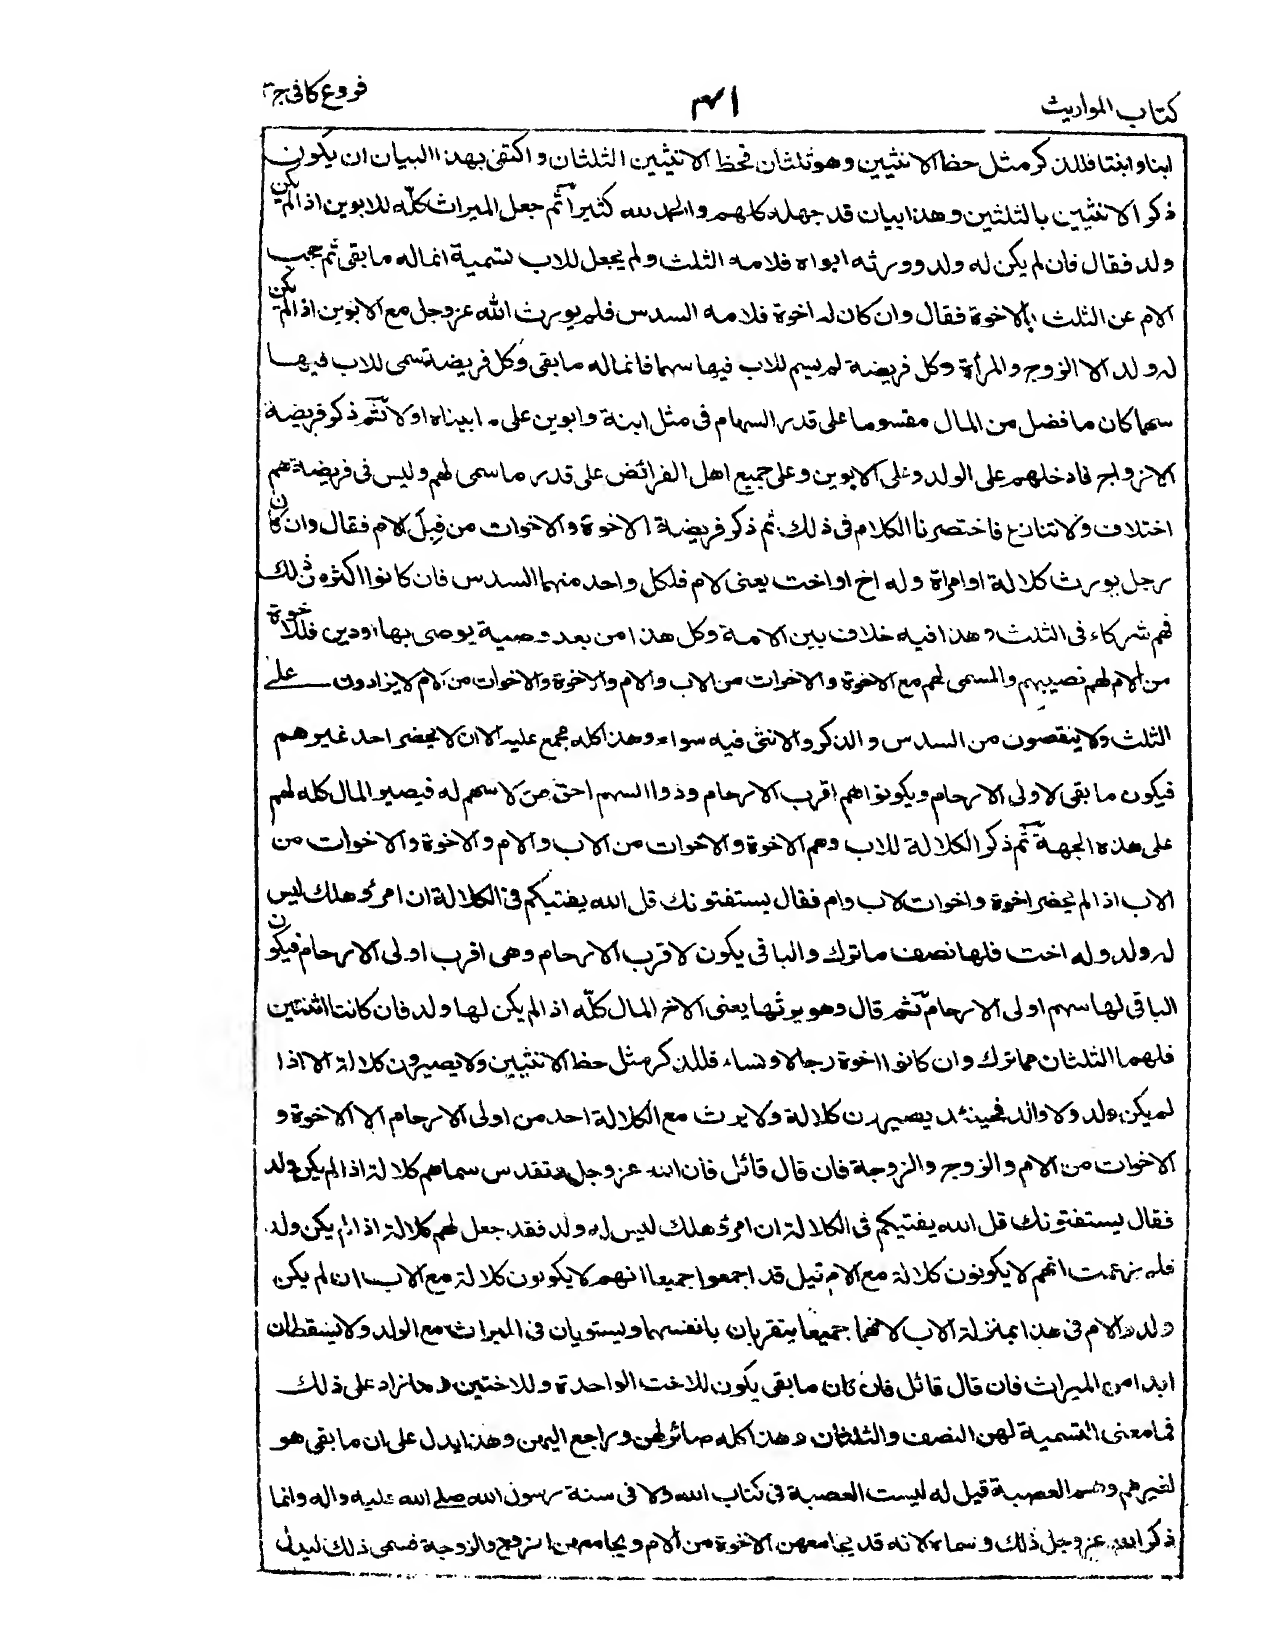 كتاب المواريث
٣٤١
فروع كافى ج٣
ابنا وابنتا فللذكر مثل حظ الانثيين وهو ثلثان فحظ الانثيين الثلثان واكتفى بهذا البيان ان يكون
ذكر الانثيين بالثلثين وهذا بيان قد جهله كلهم والحمد لله كثيرا ثم جعل الميراث كلّه للابوين اذا لم يكن
ولد فقال فان لم يكن له ولد وورثه ابواه فلامه الثلث ولم يجعل للاب تسمية انما له ما بقى ثم حجب
الام عن الثلث بالاخوة فقال وان كان له اخوة فلامه السدس فلم يورث الله عزوجل مع الابوين اذا لم يكن
له ولد الا الزوج والمرأة وكل فريضة لم يسم للاب فيها سهما فانما له ما بقى وكل فريضة تسمى للاب فيها
سهما كان ما فضل من المال مقسوما على قدر السهام فى مثل ابنة وابوين على ما بيناه اولا ثم ذكر فريضة
الازواج فادخلهم على الولد وعلى الابوين وعلى جميع اهل الفرائض على قدر ما سمى لهم وليس فى فريضتهم
اختلاف ولا تنازع فاختصرنا الكلام فى ذلك ثم ذكر فريضة الاخوة والاخوات من قبل الام فقال وان كان
رجل يورث كلالة او امراة وله اخ او اخت يعنى لام فلكل واحد منهما السدس فان كانوا اكثر من ذلك
فهم شركاء فى الثلث وهذا فيه خلاف بين الامة وكل هذا من بعد وصية يوصى بها او دين فللاخوة
من الام لهم نصيبهم والمسمى لهم مع الاخوة والاخوات من الاب والام والاخوة والاخوات من الام لا يزادون على
الثلث ولا ينقصون من السدس والذكر والانثى فيه سواء وهذا كله مجمع عليه الا ان لا يحضر احد غيرهم
فيكون ما بقى لاولى الارحام ويكونوا هم اقرب الارحام وذوا السهم احق من لا سهم له فيصير المال كله لهم
على هذه الجهة ثم ذكر الكلالة للاب وهم الاخوة والاخوات من الاب والام والاخوة والاخوات من
الاب اذا لم يحضر اخوة واخوات لاب وام فقال يستفتونك قل الله يفتيكم فى الكلالة ان امرؤ هلك ليس
له ولد وله اخت فلها نصف ما ترك والباقى يكون لاقرب الارحام وهى اقرب اولى الارحام فيكون
الباقى لها سهم اولى الارحام ثم قال وهو يرثها يعنى الاخ المال كلّه اذا لم يكن لها ولد فان كانتا اثنتين
فلهما الثلثان مما ترك وان كانوا اخوة رجالا ونساء فللذكر مثل حظ الانثيين ولا يصيرون كلالة الا اذا
لم يكن ولد ولا والد فحينئذ يصيرون كلالة ولا يرث مع الكلالة احد من اولى الارحام الا الاخوة و
الاخوات من الام والزوج والزوجة فان قال قائل فان الله عزوجل وتقدس سماهم كلالة اذا لم يكن ولد
فقال يستفتونك قل الله يفتيكم فى الكلالة ان امرؤ هلك ليس له ولد فقد جعل لهم كلالة اذا لم يكن ولد
فلم زعمت انهم لا يكونون كلالة مع الام قيل قد اجمعوا جميعا انهم لا يكونون كلالة مع الاب ان لم يكن
ولد والام فى هذا بمنزلة الاب لانهما جميعا يتقربان بانفسهما ويستويان فى الميراث مع الولد ولا يسقطان
ابدا من الميراث فان قال قائل فان كان ما بقى يكون للاخت الواحدة وللاختين وما زاد على ذلك
فما معنى التسمية لهن النصف والثلثان وهذا كله صائر لهن وراجع اليهن وهذا يدل على ان ما بقى هو
لغيرهم وهم العصبة قيل له ليست العصبة فى كتاب الله ولا فى سنة رسول الله صلى الله عليه واله وانما
ذكر الله عزوجل ذلك وسماه لانه قد يجامعهن الاخوة من الام ويجامعهن الزوج والزوجة فسمى ذلك ليدل